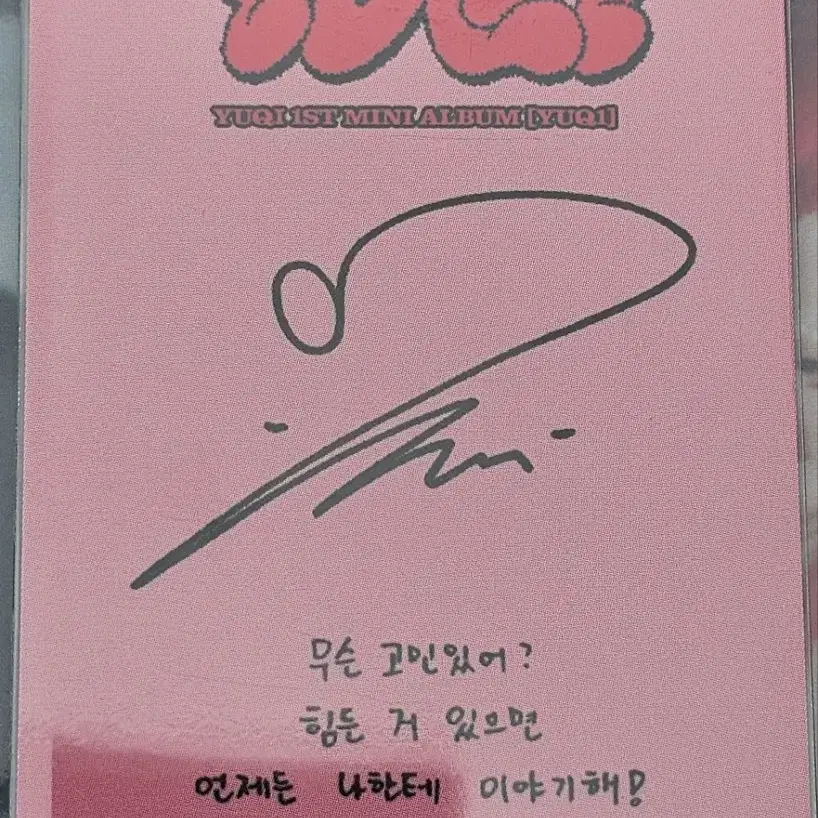 YUQI 1ST MINI ALBUM [YUQ1]
무슨 고민있어?
힘든 거 있으면
언제든 나한테 이야기해!